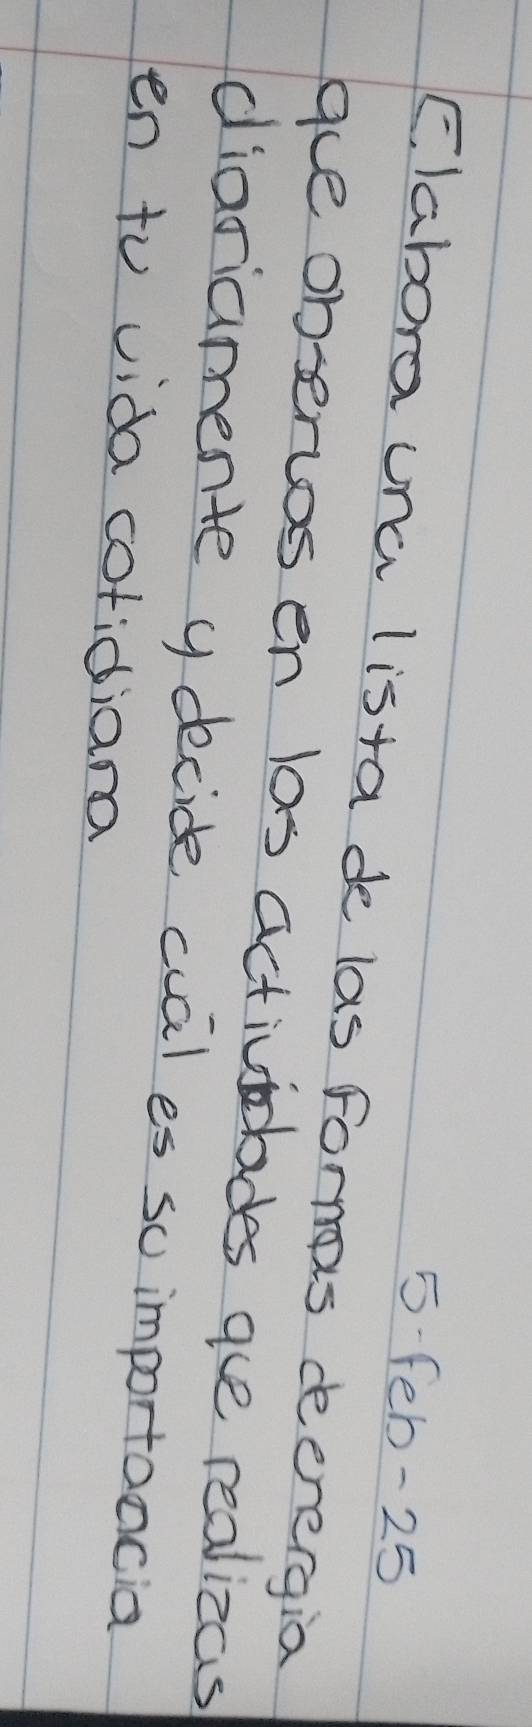 5-feb-25
Elabora una lista de las formas de energia
que observas en las actividades que realizas
diariamente y decide cuál es su importancia
en tu vida cotidiana